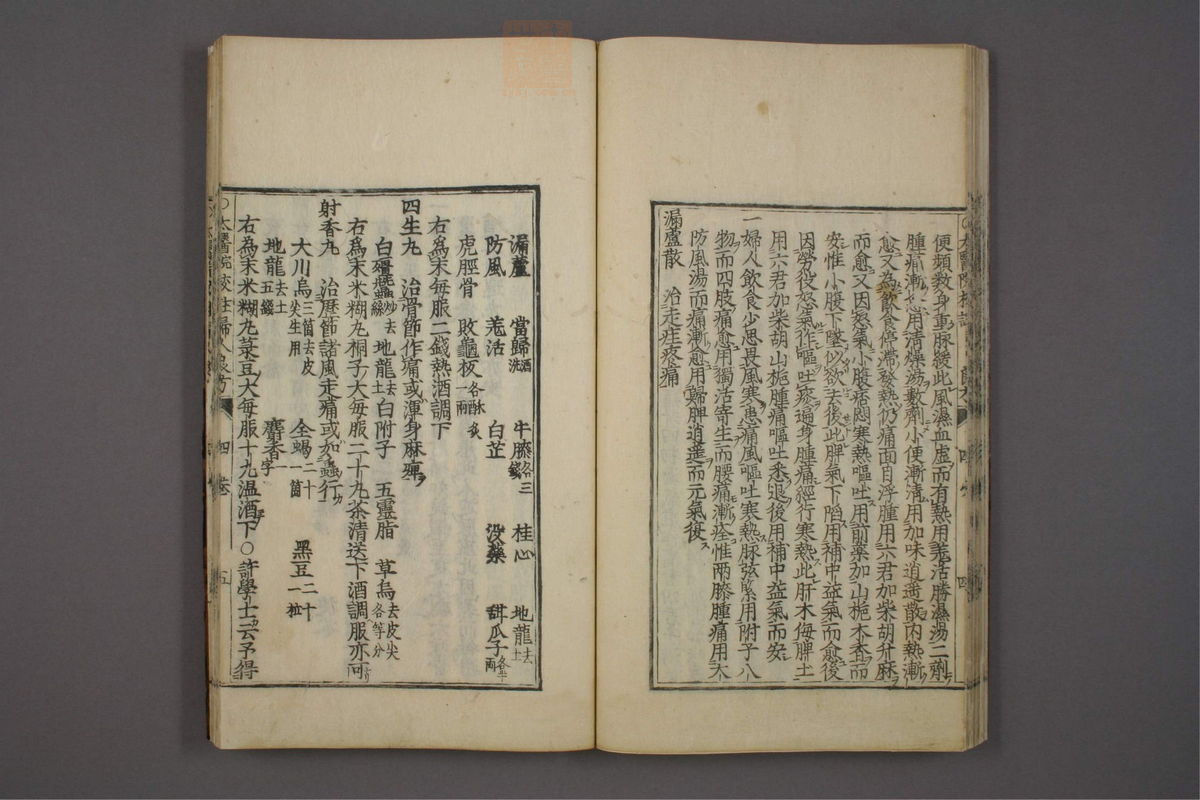 便頻數身重脉緩此風濕血虛而有熱用羌活勝濕湯二劑
腫痛漸愈用清燥湯數劑小便漸清用加味逍遥散內熱漸
愈又為飲食停滯發熱仍痛面目浮腫用六君加柴胡升麻
而愈又因怒氣小腹痞悶寒熱嘔吐用前藥加山梔木香而
安惟小腹下墜似欲去後此脾氣下陷用補中益氣而愈後
因勞役怒氣作嘔吐痰遍身腫痛經行寒熱此肝木侮脾土
用六君加柴胡山梔腫痛嘔吐悉退後用補中益氣而安
一婦人飲食少思畏風寒患痛風嘔吐寒熱脉弦緊用附子八
物而四肢痛愈用獨活寄生而腰痛漸痊惟兩膝腫痛用大
防風湯而痛漸愈用歸脾逍遥而元氣復
漏蘆散 治走疰疼痛
漏蘆 當歸洗酒 牛膝各三錢 桂心 地龍去土
防風 羌活 白芷 没藥 甜瓜子各半兩
虎脛骨 敗龜板各酥炙一兩
右為末每服二錢熱酒調下
四生丸 治骨節作痛或渾身麻痺
白殭蠶炒去絲 地龍去土 白附子 五靈脂 草烏去皮尖各等分
右為末米糊丸桐子大每服二十丸茶清送下酒調服亦可
射香丸 治歷節諸風走痛或如蟲行
大川烏三箇去皮尖生用 全蝎二十一箇 黑豆二十一粒
地龍去土五錢 麝香一字
右為末米糊丸菉豆大每服十丸温酒下○許學士云予得
○太醫院校註婦人良方 四卷 五